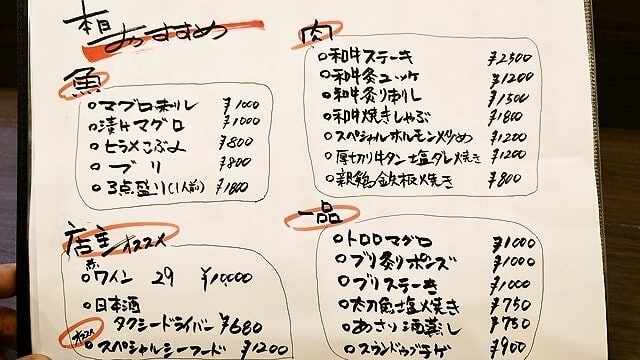 本日おすすめ
魚
○マグロ刺し ¥1000
○漬けマグロ ¥1000
○ヒラメこぶ〆 ¥800
○ブリ ¥800
○3点盛り(1人前) ¥1800
肉
○和牛ステーキ ¥2500
○和牛炙ユッケ ¥1200
○和牛炙り刺し ¥1500
○和牛焼きしゃぶ ¥1800
○スペシャルホルモン炒め ¥1200
○厚切り牛タン塩ダレ焼き ¥1200
○親鶏鉄板焼き ¥800
店主オススメ
○赤ワイン 29 ¥10000
○日本酒
タクシードライバー ¥680
オススメ
○スペシャルシーフード ¥1200
一品
○トロトロマグロ ¥1000
○ブリ炙りポンズ ¥1000
○ブリステーキ ¥1000
○太刀魚塩焼き ¥750
○あさり酒蒸し ¥750
○スンドゥブチゲ ¥900